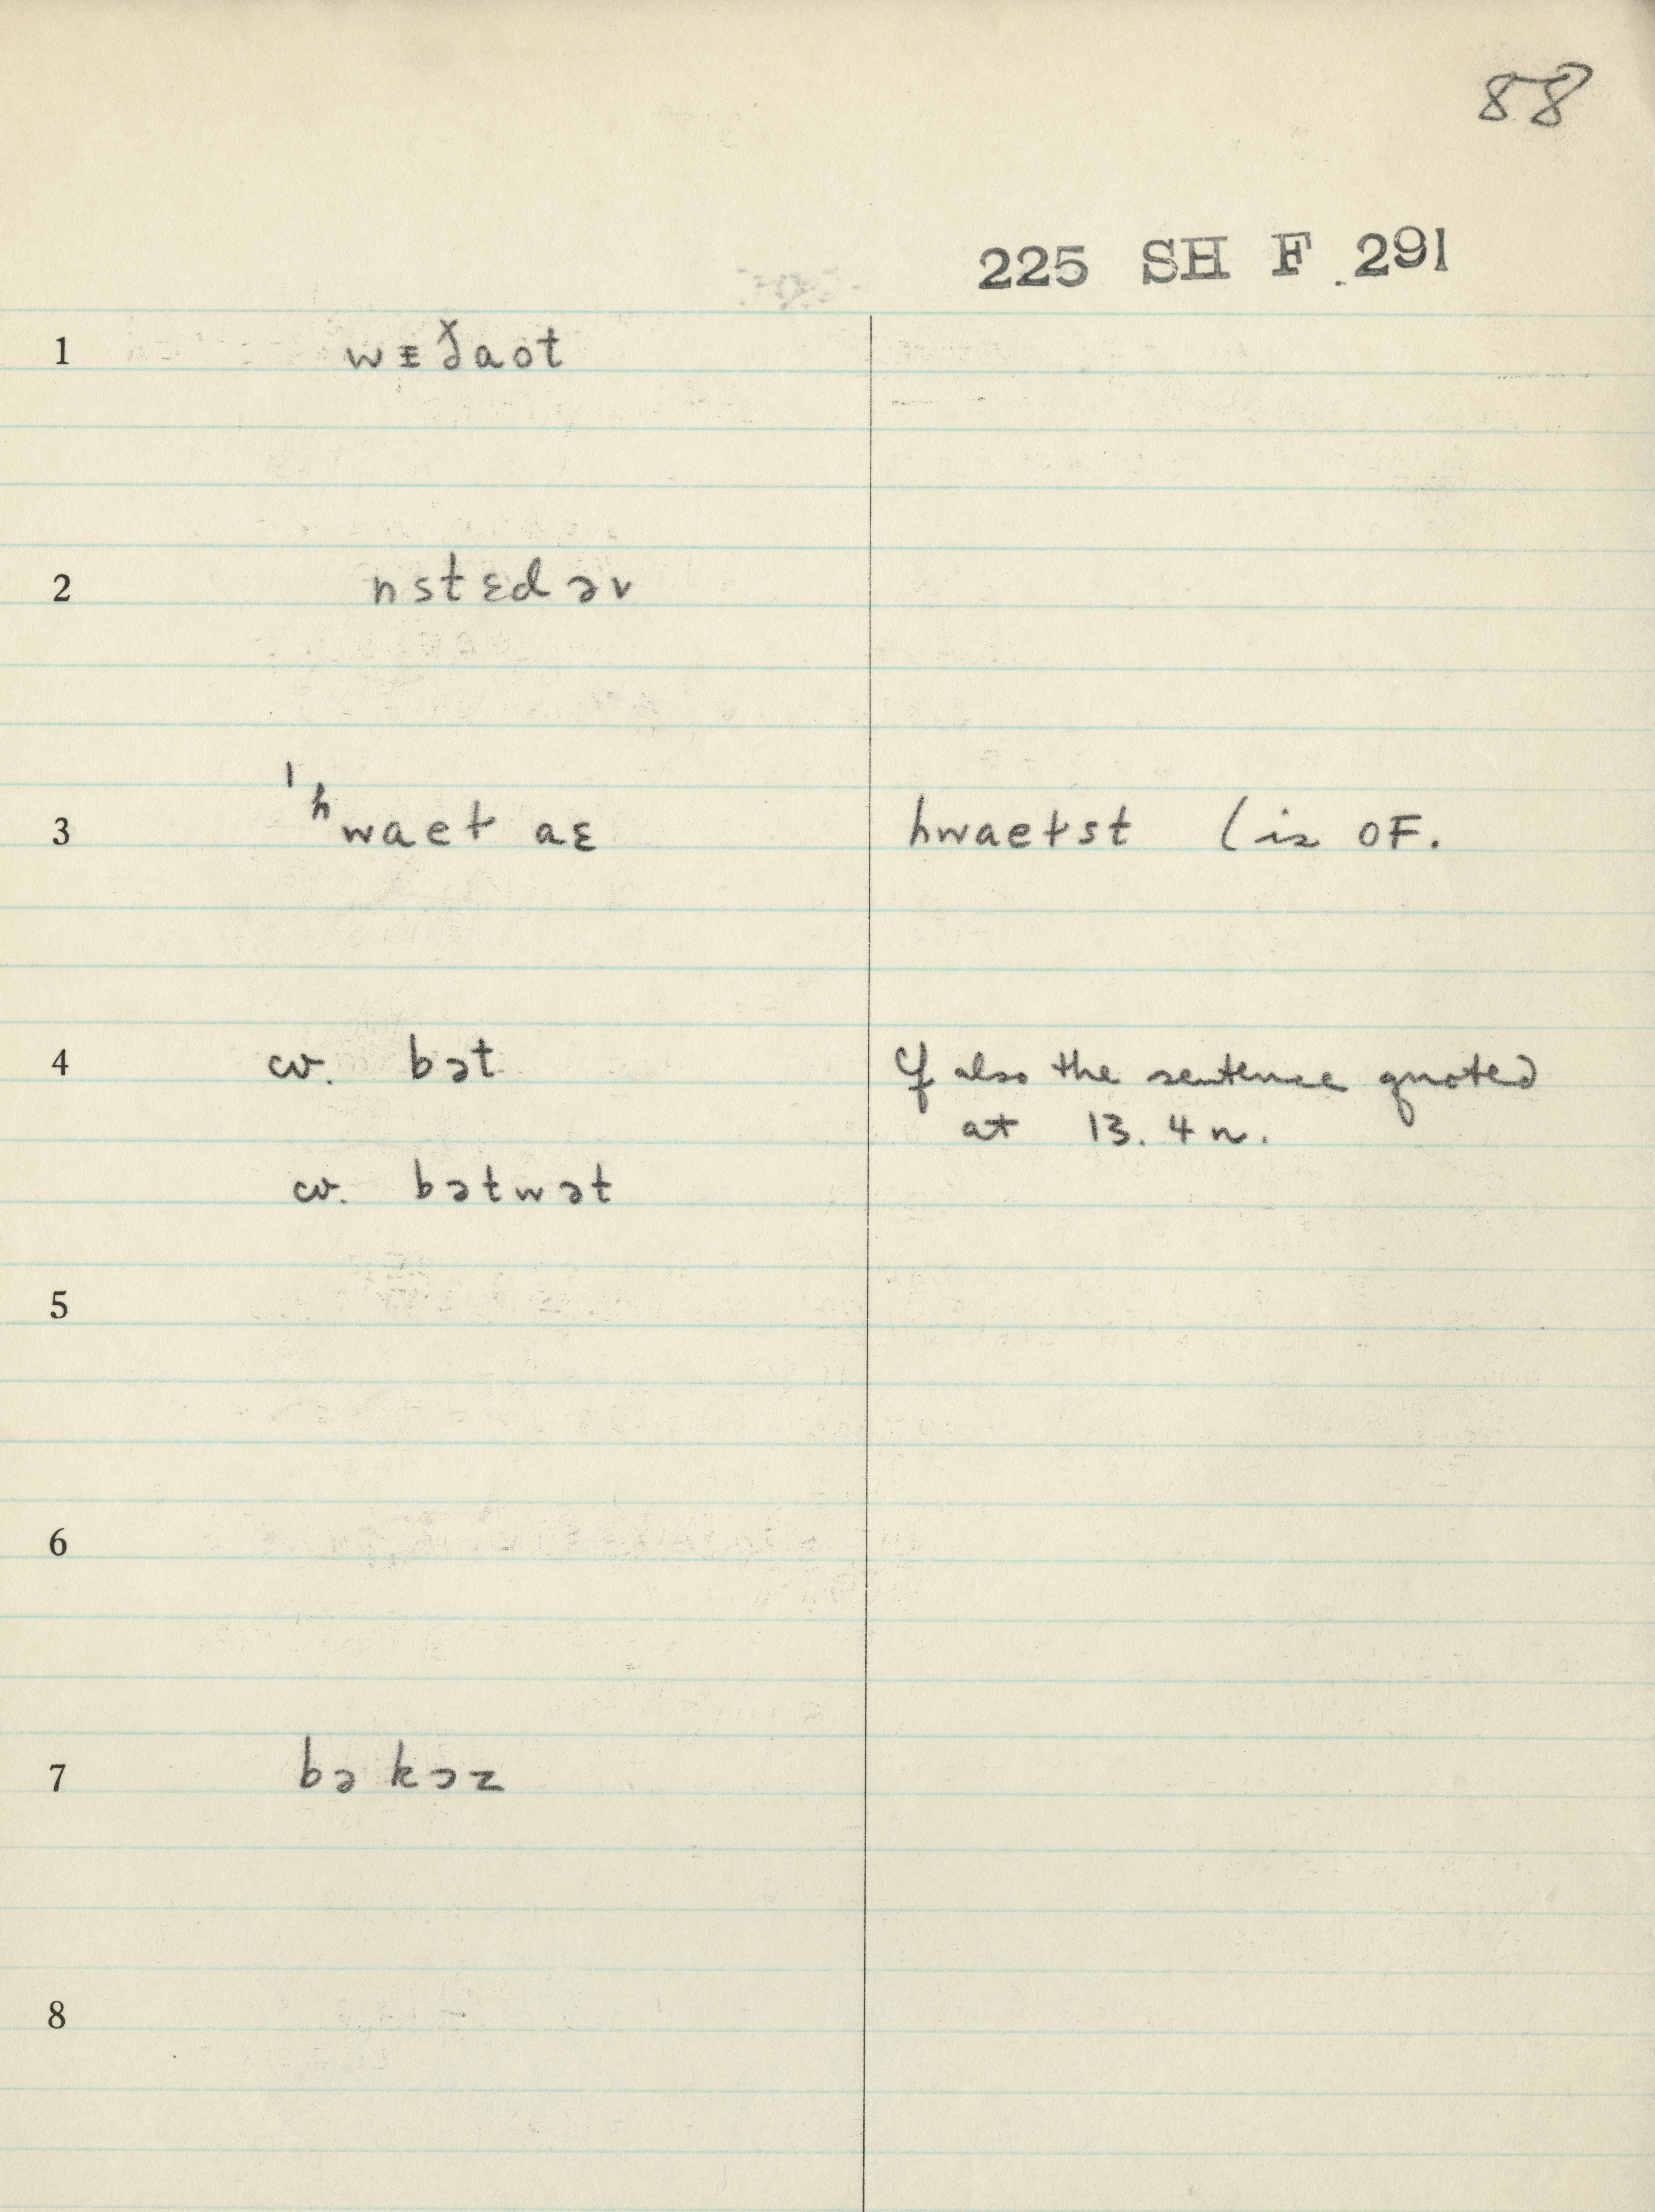 88
225 SH F 291
1 wᵻɣ̌aot
2 nstɛdəv
3 ˈʰwaet aɛ hwaetst (is OF.
4 cv. bət Cf also the sentence quoted
at 13. 4 n.
cv. bətwət
5
6
7 bə kəz
8